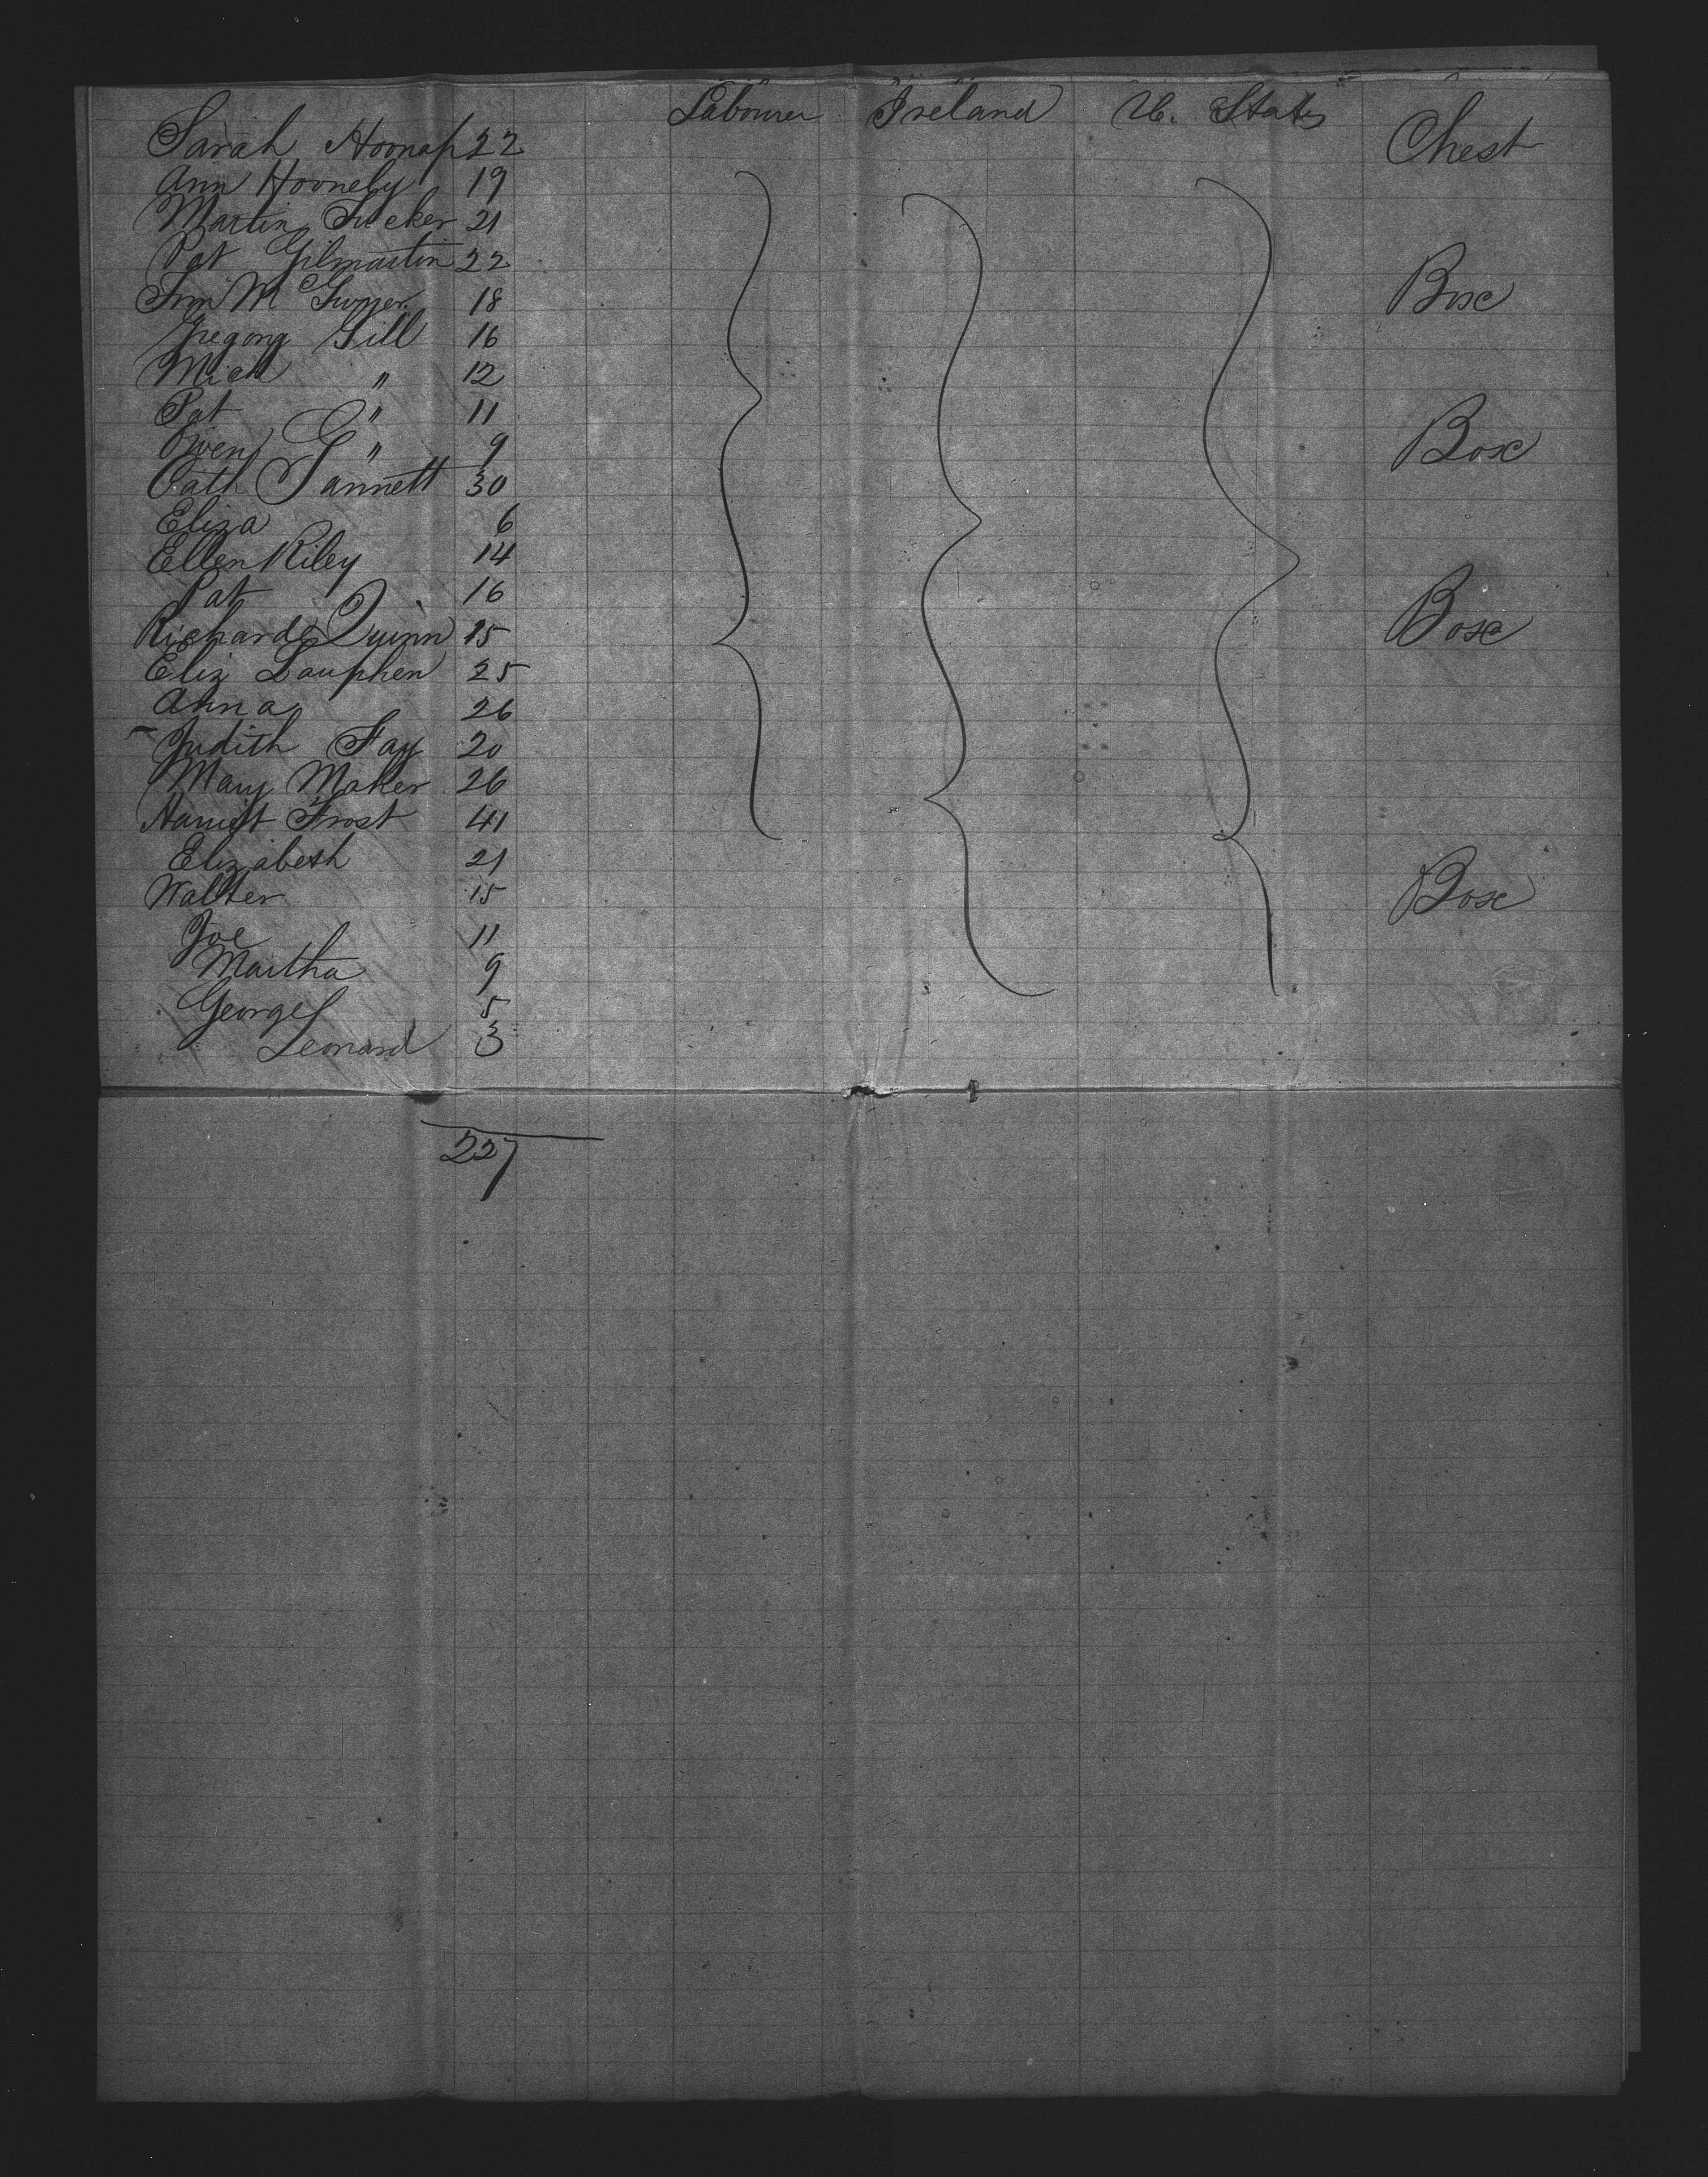 Labourer Ireland U. States
Sarah 22 Chest
Ann Horneby 19
Martin Tucker 21
Pat Gilmartin 22
18 Box
Gregory Gill 16
Mich " 12
Pat " 11
Owen " 9 Box
Cath Gannett 30
Eliza 6
Ellen Riley 14
Pat 16
Richard Quinn 15 Box
Eliz Lauphen 25
Anna 26
Judith Fay 20
Mary Maher 26
Harriet Frost 41
Elizabeth 21
Walter 15 Box
Joe 11
Martha 9
George 5
Leonard 3
227